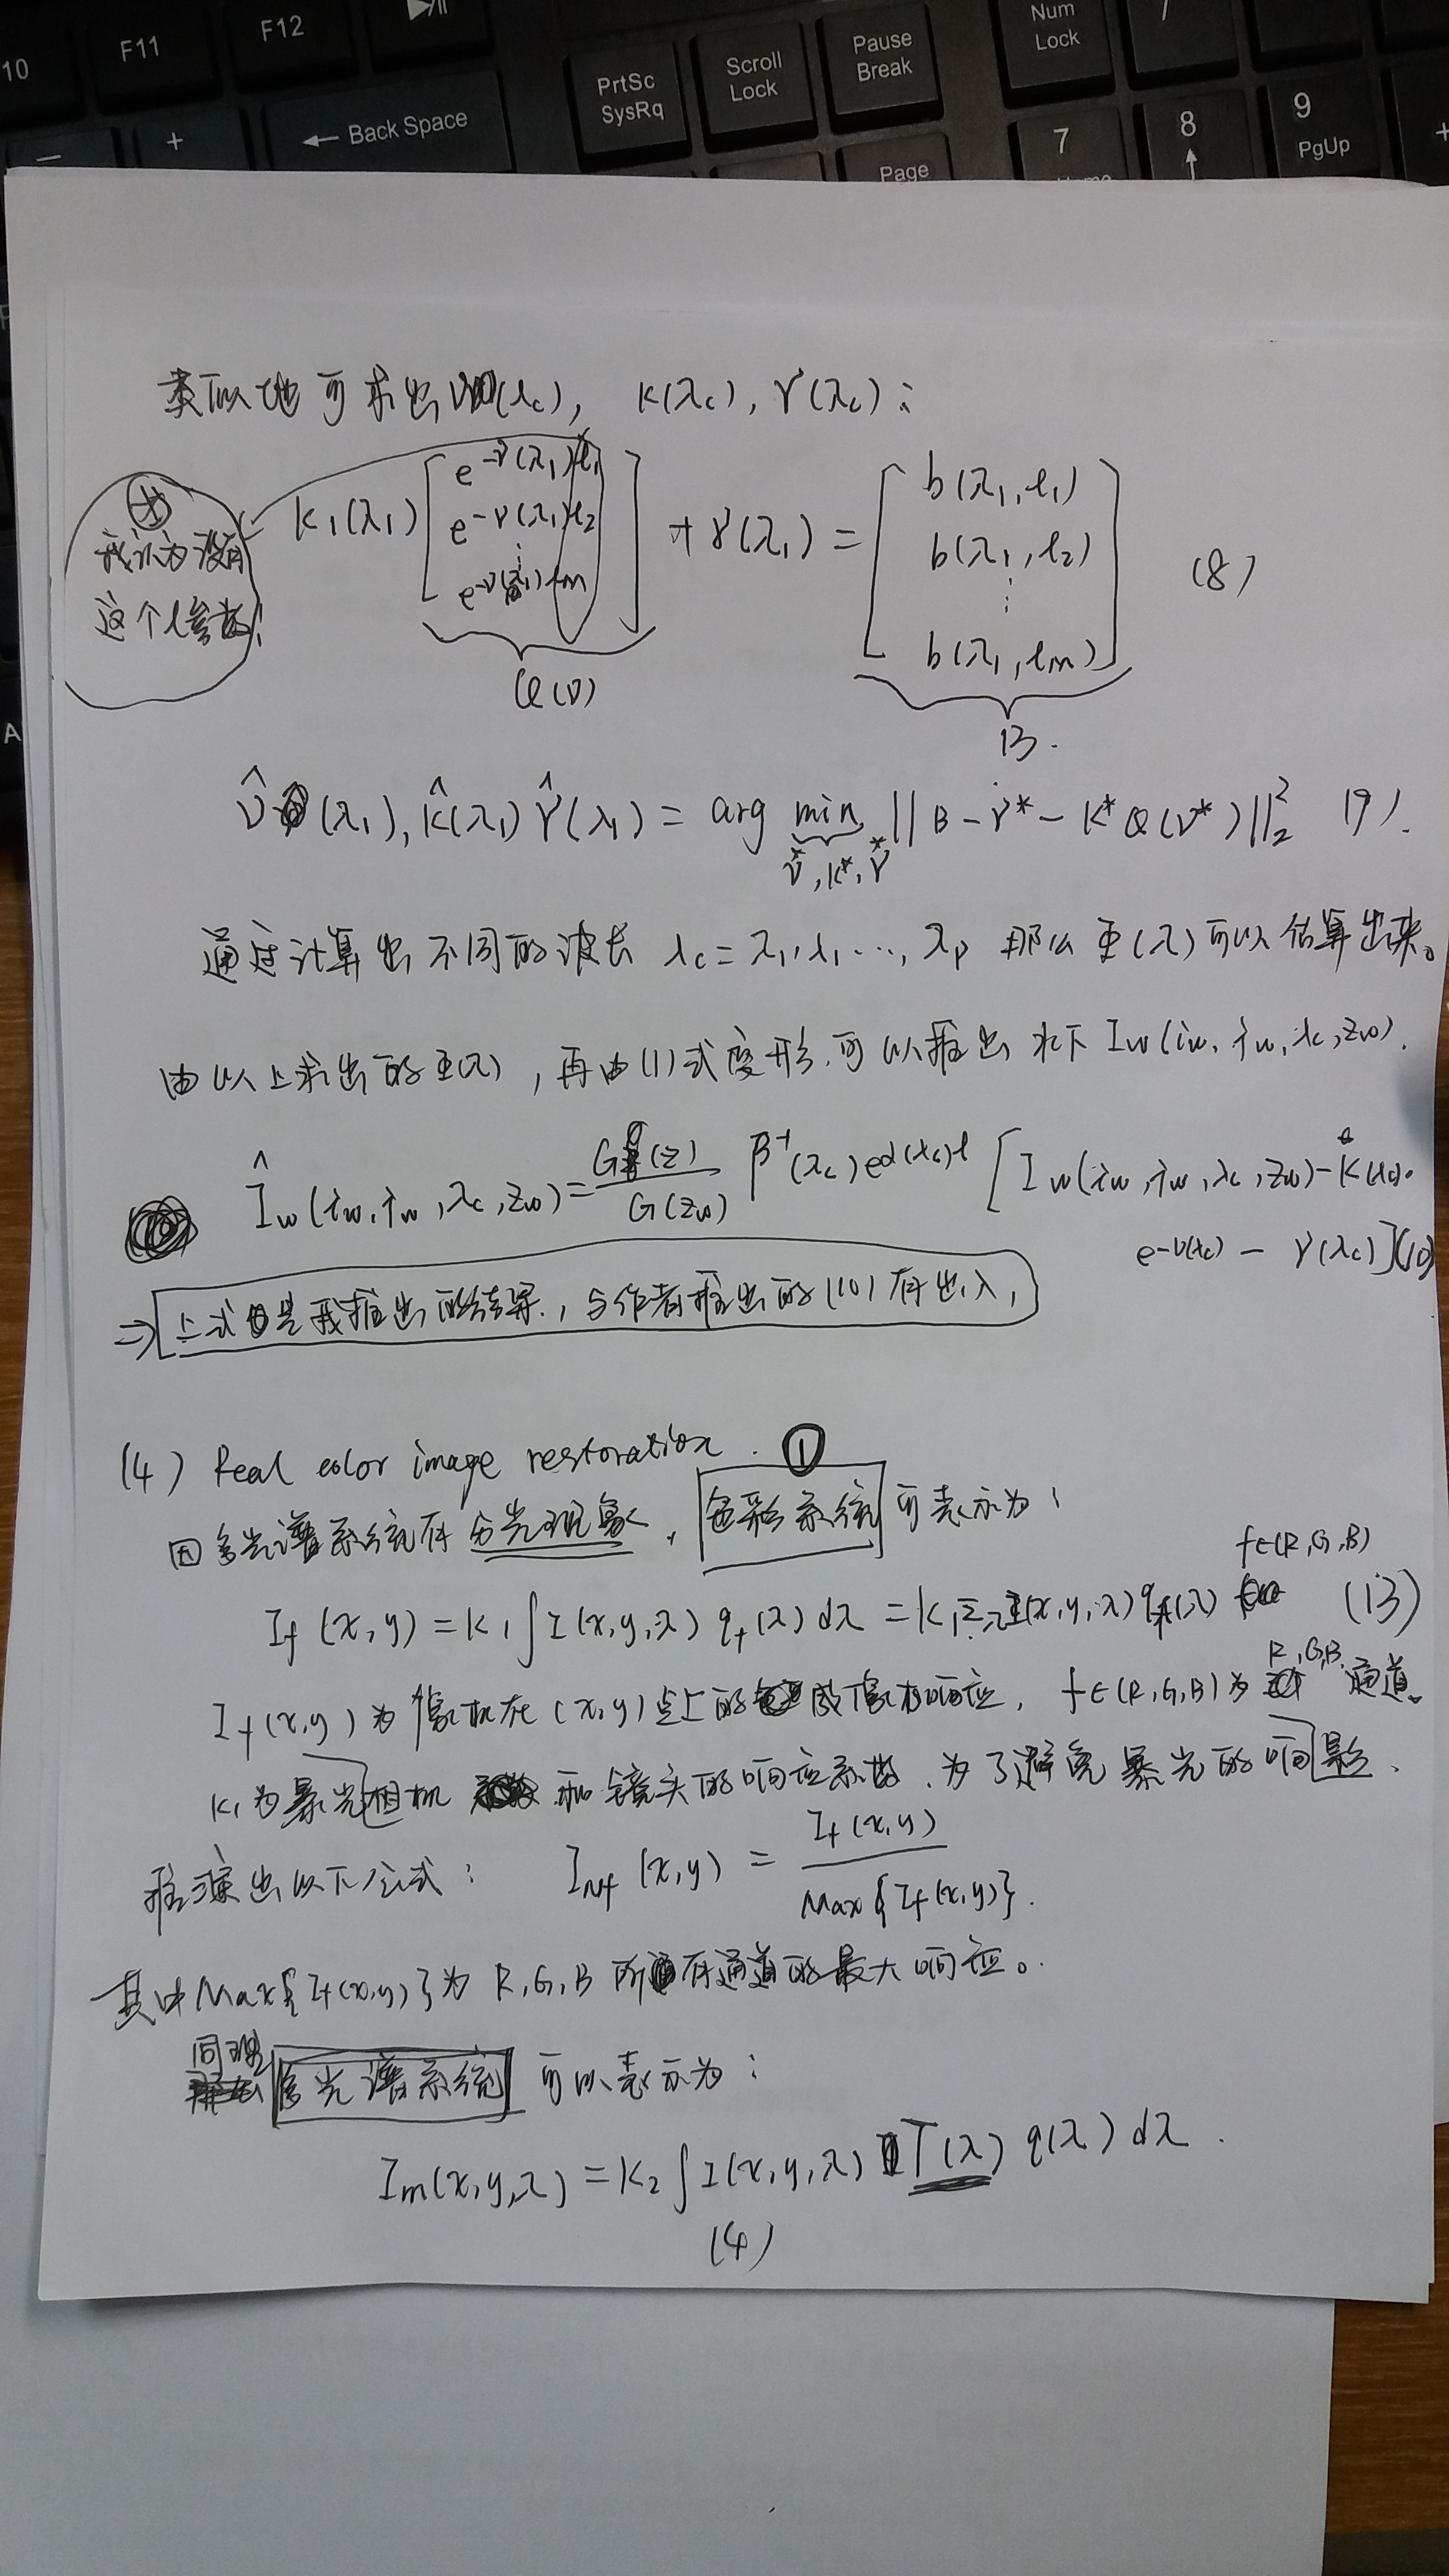 10 F11 F12
PrtSc SysRq
Scroll Lock
Pause Break
Num Lock
7
— + ← Back Space
Page
7
8 ↑
9 PgUp
+
类似地可求出 ν(λc), k(λc), γ(λc):
我认为没有
这个l参数!
k1(λ1) [ e^-ν(λ1)l1
e^-ν(λ1)l2
⋮
e^-ν(λ1)·lm ] + γ(λ1) = [ b(λ1, l1)
b(λ1, l2)
⋮
b(λ1, lm) ] (8)
Q(ν)
B.
ν̂(λ1), k̂(λ1) γ̂(λ1) = arg min || B - γ* - k* Q(ν*) ||₂² (9).
ν*, k*, γ*
通过计算出不同的波长 λc = λ1, λ1 ..., λp 那么 Φ(λ) 可以估算出来。
由以上求出的Φ(λ), 再由(1)式变形.可以推出水下 Iw(iw, jw, λc, zw).
Îw(iw, jw, λc, zw) = G(z)/G(zw) β⁻¹(λc) e^α(λc)·l [ Iw(iw, jw, λc, zw) - k̂(λc)·
e^-ν(λc) - γ(λc)] (10)
⇒ 上式是我推出的结果, 与作者推出的(10)有出入,
(4) Real color image restoration. ①
因多光谱系统有分光现象, 色彩系统可表示为:
f∈(R,G,B)
If(x,y) = k1 ∫ I(x,y,λ) qf(λ) dλ = k1 Σλ I(x,y,λ) qf(λ) (13)
If(x,y) 为像机在(x,y)点上的成像响应, f∈(R,G,B)为 R,G,B 通道。
k1为暴光相机 和镜头的响应系数. 为了避免暴光的响影、
推演出以下公式: INf(x,y) = If(x,y) / Max{If(x,y)}.
其中Max{If(x,y)}为 R,G,B 所有通道的最大响应。
同理 多光谱系统 可以表示为:
Im(x,y,λ) = k2 ∫ I(x,y,λ) T(λ) q(λ) dλ.
(4)